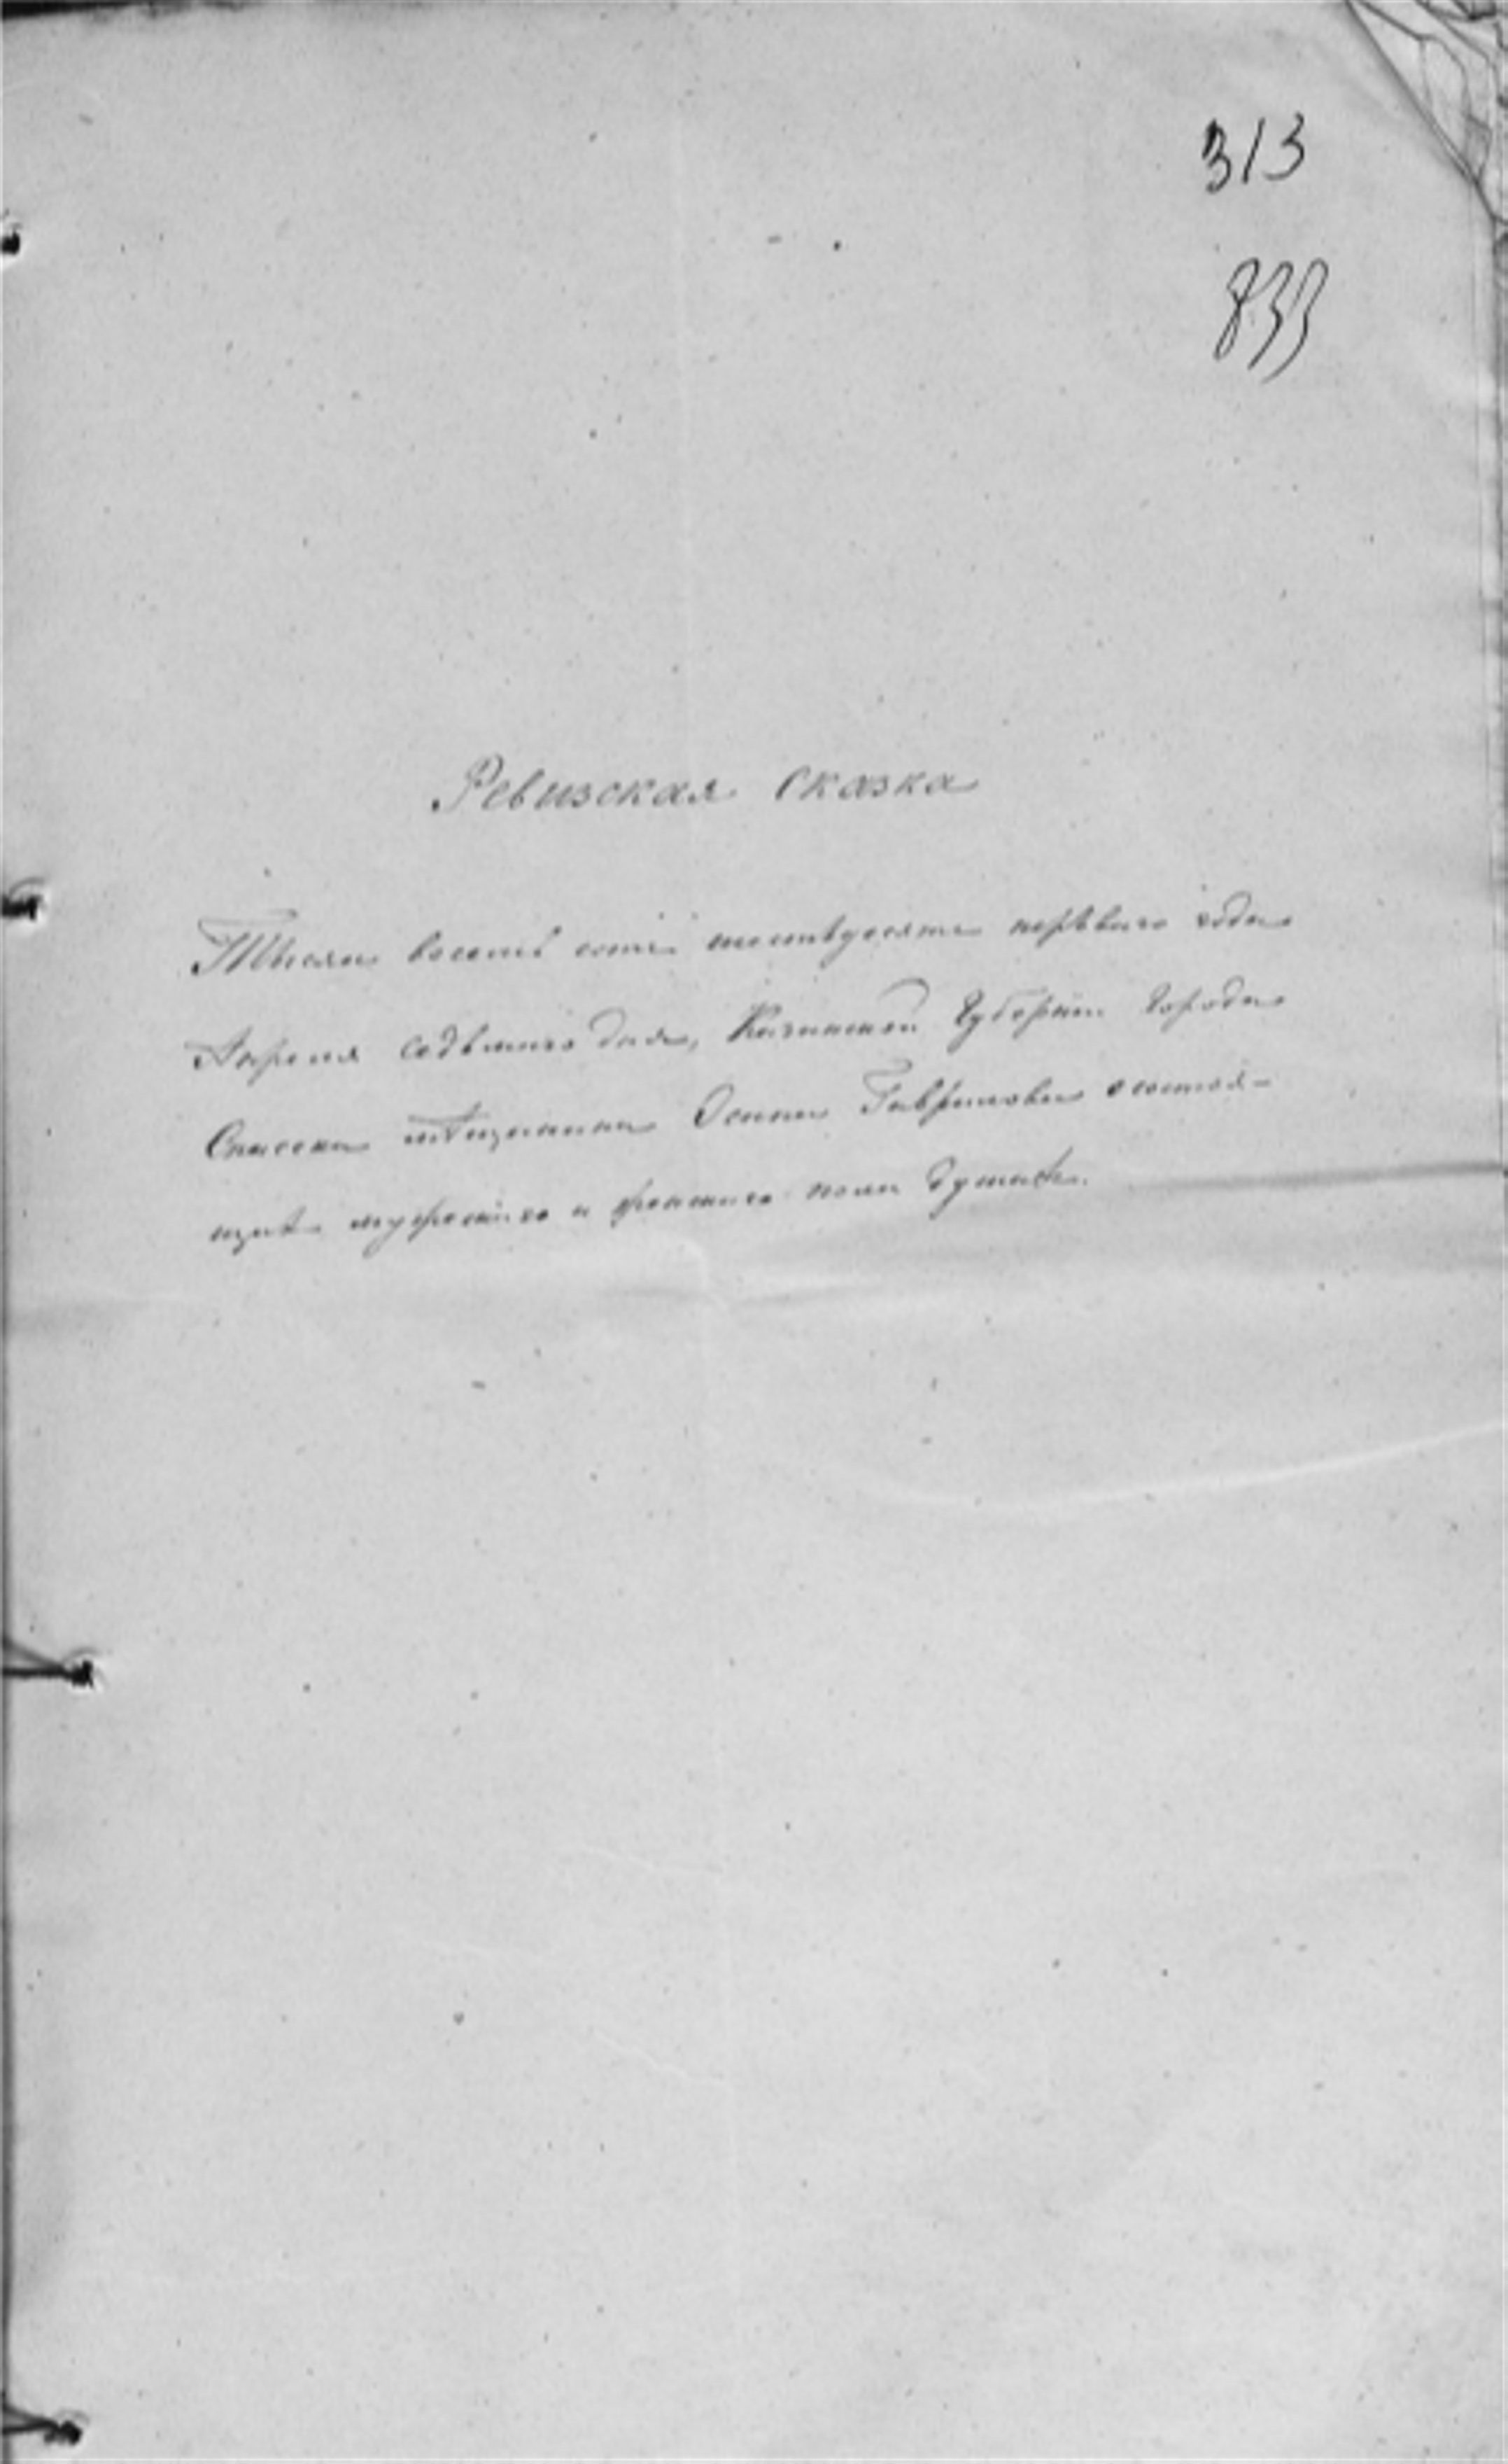 313
833
Ревизская сказка
Тысяча восемь сотъ шестьдесятъ перваго года
Апреля седьмаго дня, Казанской Губернiи Города
Спасска мѣщанина Осипа Гаврилова о состоя-
щихъ мужескаго и женскаго пола душахъ.